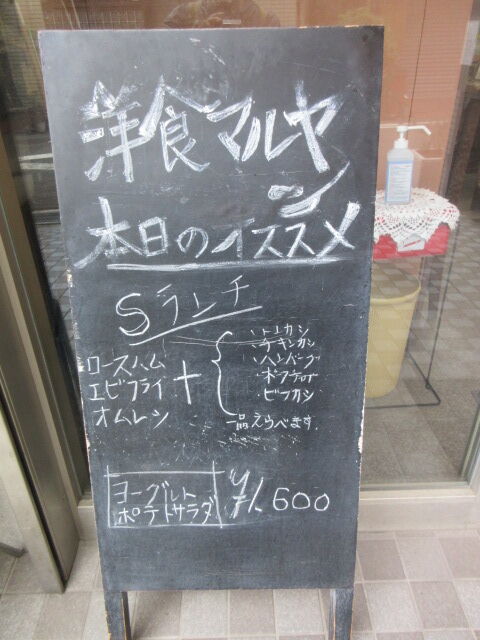 洋食マルヤ
本日のイススメ
Sランチ
ロースハム
エビフライ
オムレツ
+
・トンカツ
・チキンカツ
・ハンバーグ
・ポークチャップ
・ビフカツ
一品えらべます
ヨーグルト
ポテトサラダ
¥1,600